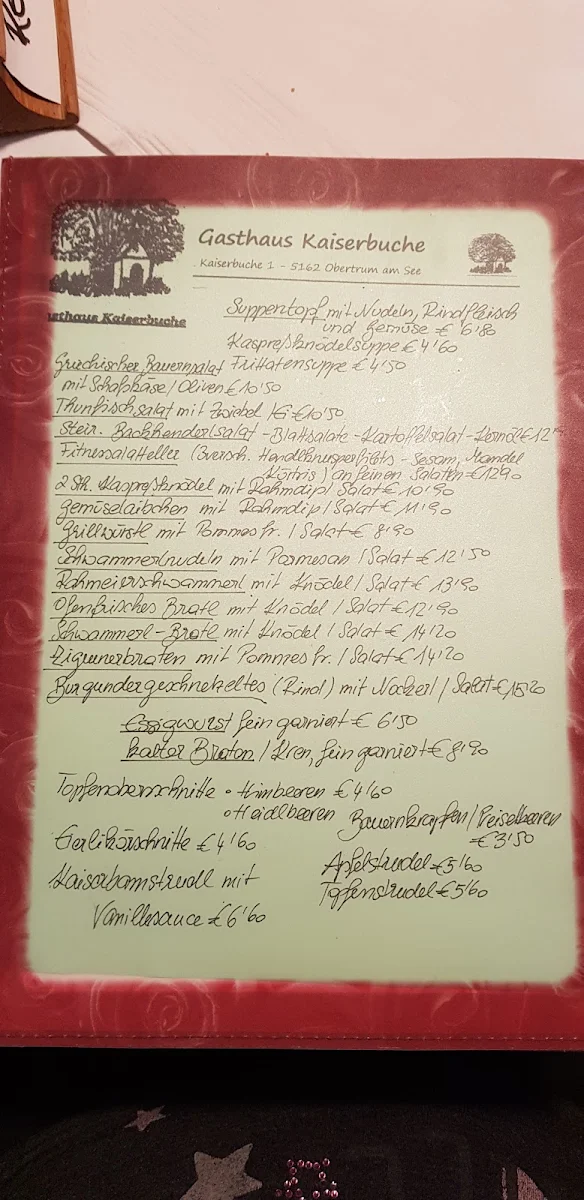 Ke
Gasthaus Kaiserbuche
Kaiserbuche 1 - 5162 Obertrum am See
sthaus Kaiserbuche
Suppentopf mit Nudeln, Rindfleisch
und Gemüse € 6'80
Kaspreßknödelsuppe € 4'60
Frittatensuppe € 4'50
Griechischer Bauernsalat
mit Schafskäse / Oliven € 10'50
Thunfischsalat mit Zwiebel / Ei € 10'50
Steir. Backhenderlsalat - Blattsalate - Kartoffelsalat - Kernöl € 12'
Fitnessalatteller (3versch. Hendlbrustfilets - Sesam, Mandel
Kürbis) an feinen Salaten € 12'90
2 Stk. Kaspreßknödel mit Rahmdip / Salat € 10'90
Gemüselaibchen mit Rahmdip / Salat € 11'90
Grillwürstl mit Pommes fr. / Salat € 8'90
Schwammerlnudeln mit Parmesan / Salat € 12'50
Rahmeierschwammerl mit Knödel / Salat € 13'90
Ofenfrisches Bratl mit Knödel / Salat € 12'90
Schwammerl-Bratl mit Knödel / Salat € 14'20
Zigeunerbraten mit Pommes fr. / Salat € 14'20
Burgundergeschnetzeltes (Rind) mit Nockerl / Salat € 15'20
Essigwurst fein garniert € 6'50
kalter Braten / Kren, fein garniert € 8'90
Topfenoberschnitte • Himbeeren € 4'60
• Heidlbeeren
Bauernkrapfen / Preiselbeeren
= € 3'50
Eierlikörschnitte € 4'60
Apfelstrudel € 5'60
Kaiserbamstrudl mit
Topfenstrudel € 5'60
Vanillesauce € 6'60